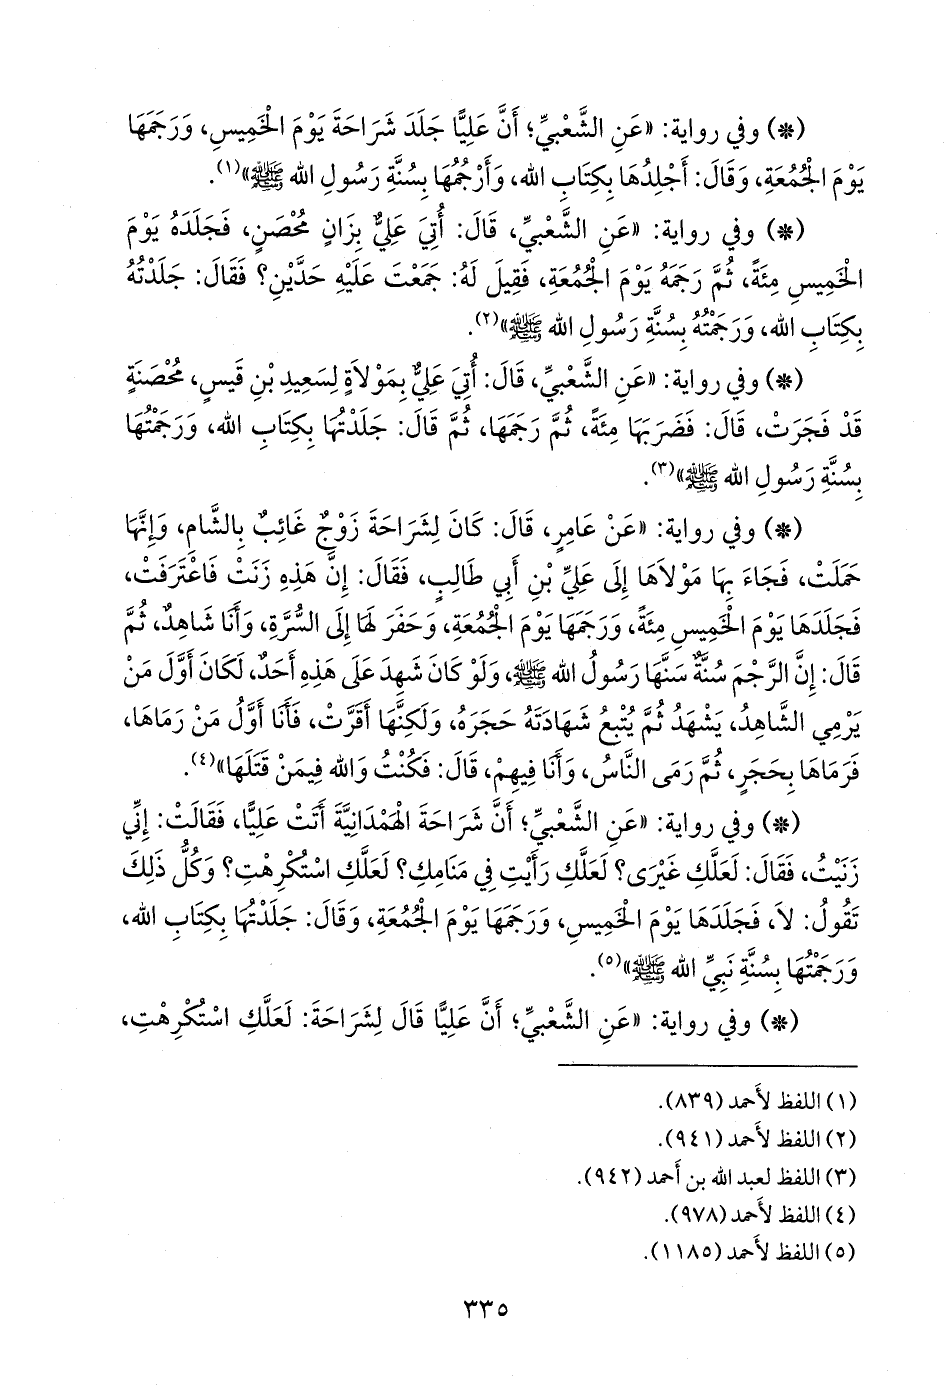 (*) وفي رواية: «عَنِ الشَّعْبِيِّ؛ أَنَّ عَلِيًّا جَلَدَ شَرَاحَةَ يَوْمَ الْخَمِيسِ، وَرَجَمَهَا
يَوْمَ الْجُمُعَةِ، وَقَالَ: أَجْلِدُهَا بِكِتَابِ الله، وَأَرْجُمُهَا بِسُنَّةِ رَسُولِ الله ﷺ»(١).
(*) وفي رواية: «عَنِ الشَّعْبِيِّ، قَالَ: أُتِيَ عَلِيٌّ بِزَانٍ مُحْصَنٍ، فَجَلَدَهُ يَوْمَ
الْخَمِيسِ مِئَةً، ثُمَّ رَجَمَهُ يَوْمَ الْجُمُعَةِ، فَقِيلَ لَهُ: جَمَعْتَ عَلَيْهِ حَدَّيْنِ؟ فَقَالَ: جَلَدْتُهُ
بِكِتَابِ الله، وَرَجَمْتُهُ بِسُنَّةِ رَسُولِ الله ﷺ»(٢).
(*) وفي رواية: «عَنِ الشَّعْبِيِّ، قَالَ: أُتِيَ عَلِيٌّ بِمَوْلَاةٍ لِسَعِيدِ بْنِ قَيسٍ، مُحْصَنَةٍ
قَدْ فَجَرَتْ، قَالَ: فَضَرَبَهَا مِئَةً، ثُمَّ رَجَمَهَا، ثُمَّ قَالَ: جَلَدْتُهَا بِكِتَابِ الله، وَرَجَمْتُهَا
بِسُنَّةِ رَسُولِ الله ﷺ»(٣).
(*) وفي رواية: «عَنْ عَامِرٍ، قَالَ: كَانَ لِشَرَاحَةَ زَوْجٌ غَائِبٌ بِالشَّامِ، وَإِنَّهَا
حَمَلَتْ، فَجَاءَ بِهَا مَوْلَاهَا إِلَى عَلِيِّ بْنِ أَبِي طَالِبٍ، فَقَالَ: إِنَّ هَذِهِ زَنَتْ فَاعْتَرَفَتْ،
فَجَلَدَهَا يَوْمَ الْخَمِيسِ مِئَةً، وَرَجَمَهَا يَوْمَ الْجُمُعَةِ، وَحَفَرَ لَهَا إِلَى السُّرَّةِ، وَأَنَا شَاهِدٌ، ثُمَّ
قَالَ: إِنَّ الرَّجْمَ سُنَّةٌ سَنَّهَا رَسُولُ الله ﷺ، وَلَوْ كَانَ شَهِدَ عَلَى هَذِهِ أَحَدٌ، لَكَانَ أَوَّلَ مَنْ
يَرْمِي الشَّاهِدُ، يَشْهَدُ ثُمَّ يُتْبِعُ شَهَادَتَهُ حَجَرَهُ، وَلَكِنَّهَا أَقَرَّتْ، فَأَنَا أَوَّلُ مَنْ رَمَاهَا،
فَرَمَاهَا بِحَجَرٍ، ثُمَّ رَمَى النَّاسُ، وَأَنَا فِيهِمْ، قَالَ: فَكُنْتُ وَالله فِيمَنْ قَتَلَهَا»(٤).
(*) وفي رواية: «عَنِ الشَّعْبِيِّ؛ أَنَّ شَرَاحَةَ الْهَمْدَانِيَّةَ أَتَتْ عَلِيًّا، فَقَالَتْ: إِنِّي
زَنَيْتُ، فَقَالَ: لَعَلَّكِ غَيْرَى؟ لَعَلَّكِ رَأَيْتِ فِي مَنَامِكِ؟ لَعَلَّكِ اسْتُكْرِهْتِ؟ وَكُلُّ ذَلِكَ
تَقُولُ: لَا، فَجَلَدَهَا يَوْمَ الْخَمِيسِ، وَرَجَمَهَا يَوْمَ الْجُمُعَةِ، وَقَالَ: جَلَدْتُهَا بِكِتَابِ الله،
وَرَجَمْتُهَا بِسُنَّةِ نَبِيِّ الله ﷺ»(٥).
(*) وفي رواية: «عَنِ الشَّعْبِيِّ؛ أَنَّ عَلِيًّا قَالَ لِشَرَاحَةَ: لَعَلَّكِ اسْتُكْرِهْتِ،
(١) اللفظ لأَحمد (٨٣٩).
(٢) اللفظ لأَحمد (٩٤١).
(٣) اللفظ لعبد الله بن أَحمد (٩٤٢).
(٤) اللفظ لأَحمد (٩٧٨).
(٥) اللفظ لأَحمد (١١٨٥).
٣٣٥